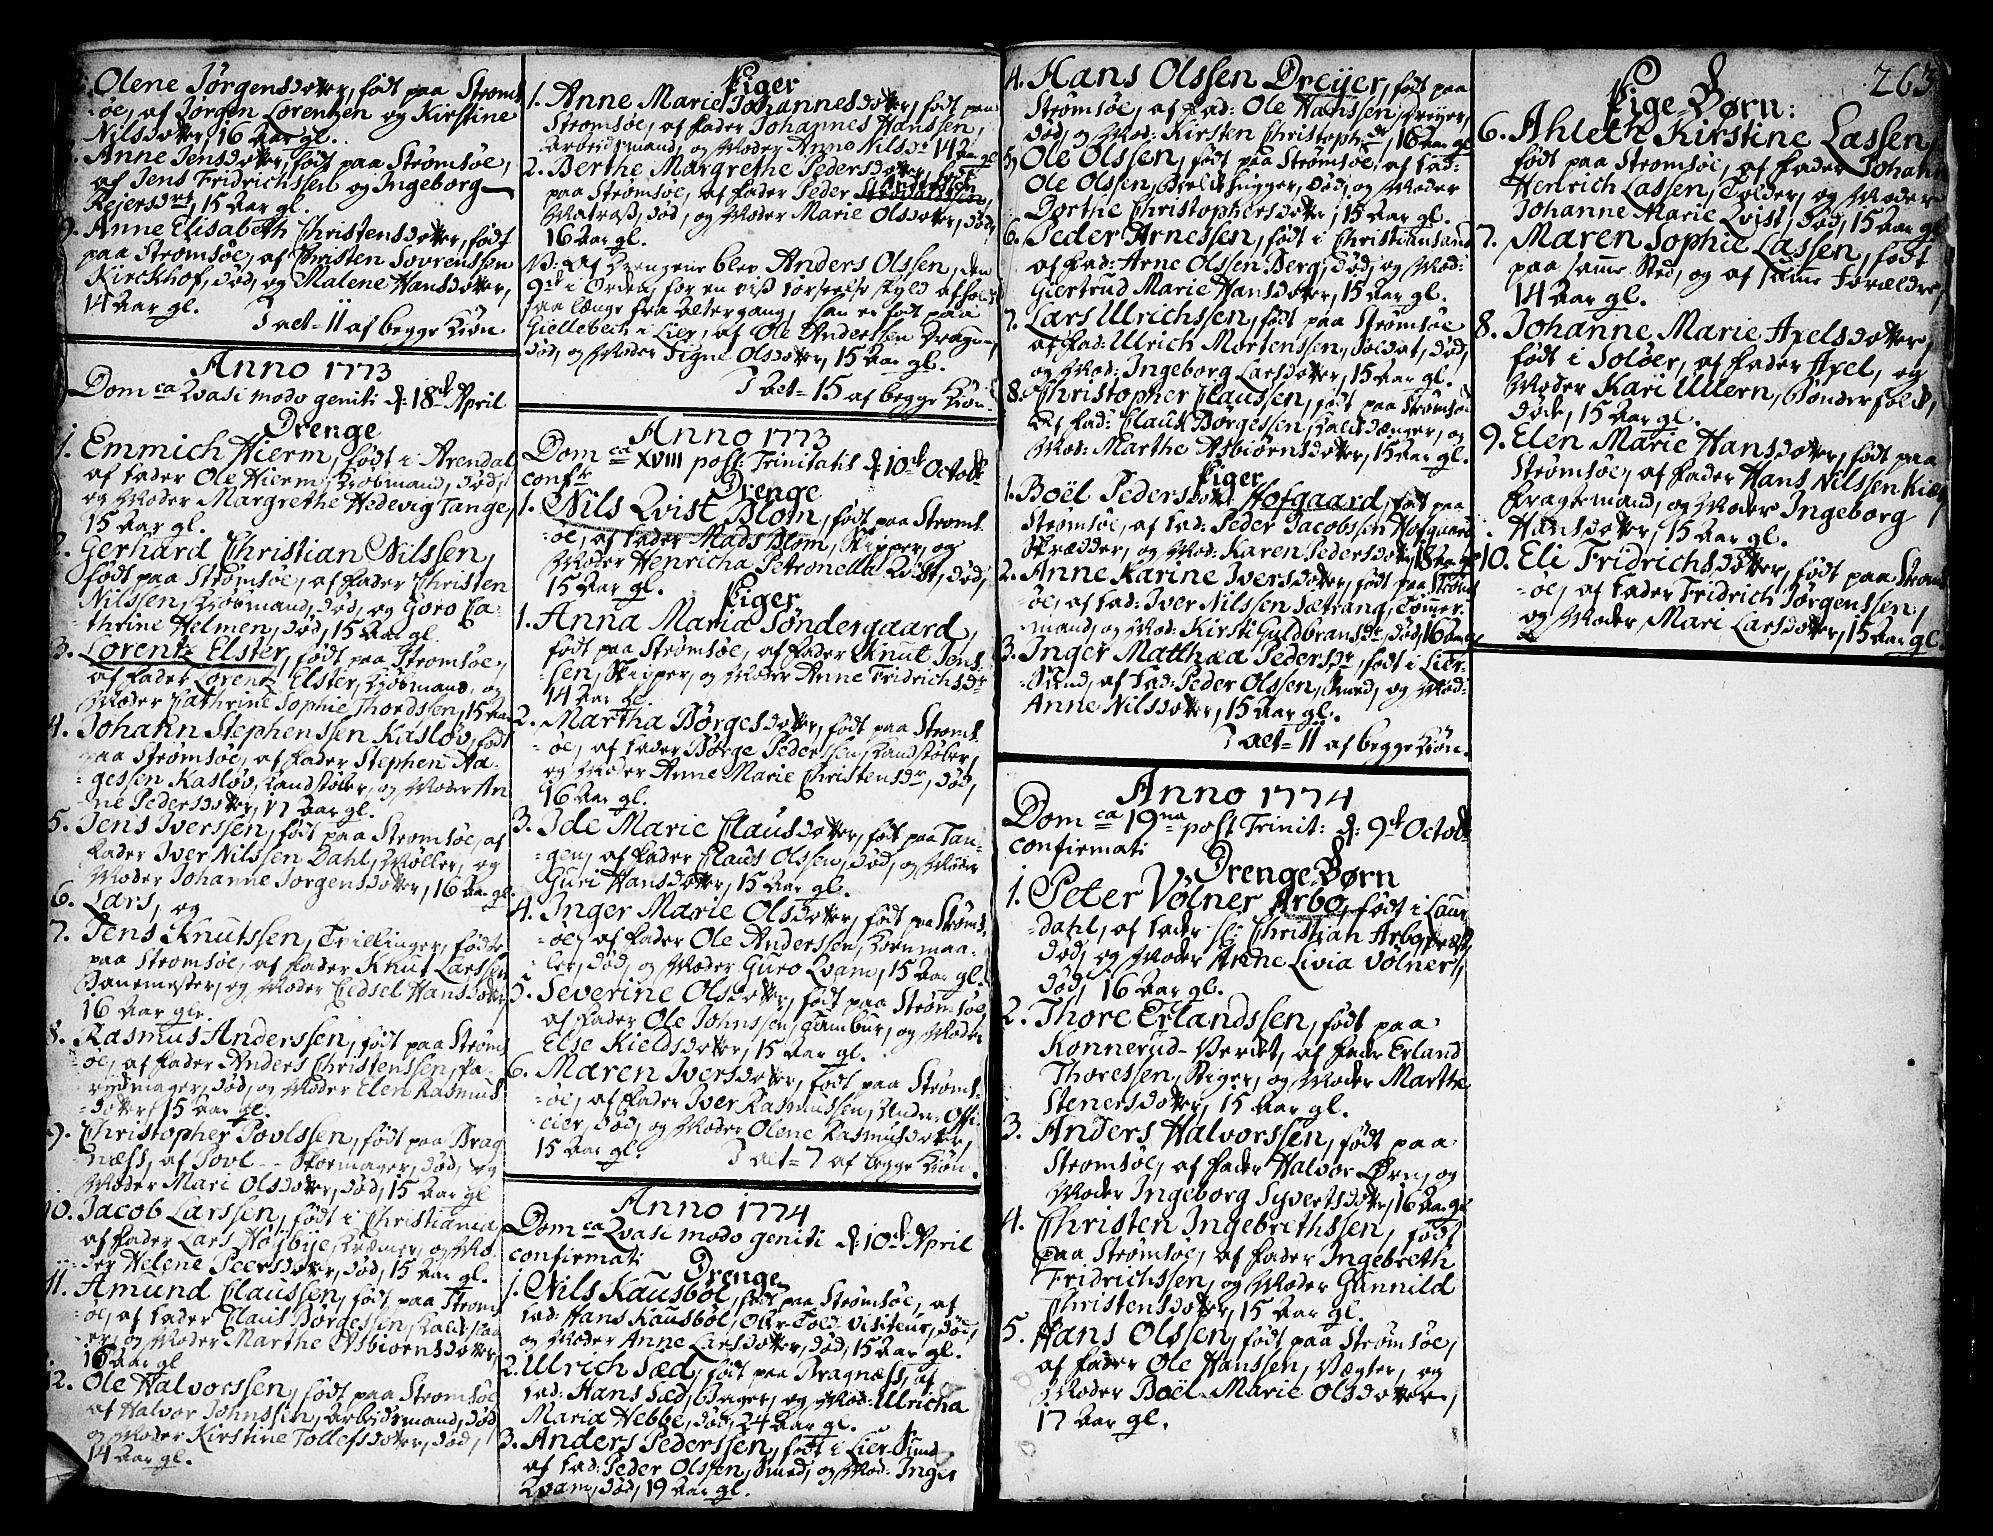 Olene Jørgensdotter, født paa Stroms-
=øe, af Jørgen Lorentzen og Kirstine
Nilsdotter, 16 Aar gl.
Anne Jensdotter, født paa Strømsøe,
af Jens Fridrichssen og Ingeborg
Rejersdtr, 15 Aar gl.
9. Anne Elisabeth Christensdotter, født
paa Strømsøe, af Christen Sovrenssen
Kirckhof, død, og Malene Hansdotter,
14 Aar gl.
I alt = 11 af begge Kiøn
Anno 1773
Dom ca Qvasi modo geniti d: 18de April
Drenge
1. Emmich Hierm, født i Arendal
af Fader Ole Hierm, Kiøbmand, død,
og Moder Margrethe Hedevig Tange,
15 Aar gl.
2. Gerhard Christian Nilssen,
født paa Strømsøe, af Fader Christen
Nilssen, Kiøbmand, død, og Goro Ca-
thrine Helmen, død, 15 Aar gl.
3. Lorentz Elster, født paa Strømsøe,
af Fader Lorentz Elster, Kiøbmand, og
Moder Cathrine Sophie Thordssen, 15 Aar
4. Johann Stephenssen Kasløv, født
paa Strømsøe, af Fader Stephen Aa-
gessen Kasløv, Kandstøber, og Moder An-
ne Pedersdotter, 17 Aar gl.
5. Jens Iverssen, født paa Strømsøe, af
Fader Iver Nilssen Dahl, Møller, og
Moder Johanne Jørgensdotter, 16 Aar gl.
6. Lars, og
7. Jens Knutssen, Trillinger, fødte
paa Strømsøe, af Fader Knut Larssen
Banemester, og Moder Eedsel Hansdotter
16 Aar gle.
8. Rasmus Anderssen, født paa Strøms
=øe, af Fader Anders Christenssen, Pa-
rydmager, død, og Moder Elen Rasmus
=dotter, 15 Aar gl.
9. Christopher Povlssen, født paa Brag
næss, af Povl - - Skormager, død, og
Moder Mari Olsdotter, død, 15 Aar gl
10. Jacob Larssen, født i Christiania,
af Fader Lars Høybye, Kræmer, og Mo
der Helene Peersdotter, død, 15 Aar gl.
11. Amund Claussen, født paa Strøms
=øe, af Fader Claus Børgessen,
og Moder Marthe Asbiørnsdotter,
16 Aar gl
12. Ole Halvorssen, født paa Strømsøe
af Halvor Johnssen, Arbeidsmand, død
og Moder Kirstine Tollefsdotter, død,
14 Aar gl.
Piger
1. Anne Marie Johannesdotter, født paa
Strømsøe, af Fader Johannes Hanssen,
Arbeidsmand, og Moder Anne Nilsdr 14 Aar gl
2. Berthe Margrethe Pedersdotter, født
paa Strømsøe, af Fader Peder
Matross, død, og Moder Marie Olsdotter, død,
16 Aar gl.
N: Af Drengene blev Anders Olssen, den
9de i Orden, for en viss Forseelse skyld afholdt
saa længe fra Altergang, han er født paa
Giellebech i Lier, af Ole Anderssen Dragun,
død, og Moder Signe Olsdotter, 15 Aar gl.
I Alt = 15 af begge Kiøn.
Anno 1773
Dom ca XVIII post Trinitatis d: 10de Octob:
conf:
Drenge
1. Nils Qvist Blom, født paa Strøms-
=øe, af Fader Mads Blom, Skipper, og
Moder Henricha Petronella Qvist, død,
15 Aar gl.
Piger
1. Anna Maria Søndergaard,
født paa Strømsøe, af Fader Knut Jens-
sen, Skipper, og Moder Anne Fridrichsdr
14 Aar gl.
2. Martha Børgesdotter, født paa Strøms-
=øe, af Fader Børge Pederssen, Kandstøber,
og Moder Anne Marie Christensdr, død,
16 Aar gl.
3. Ide Marie Clausdotter, føt paa Tan-
=gen, af Fader Claus Olssen, død, og Moder
Guri Hansdotter, 15 Aar gl.
4. Inger Marie Olsdotter, født paa Strøms-
=øe, af Fader Ole Anderssen, Kornmaa-
=ler, død, og Moder Guro Qvam, 15 Aar gl.
5. Severine Olsdotter, født paa Strømsøe,
af Fader Ole Johnssen, Tambur, og Moder
Else Kieldsdotter, 15 Aar gl.
6. Maren Iversdotter, født paa Strøms-
=øe, af Fader Iver Rasmussen, Under-Offi-
=cier, død, og Moder Olene Rasmusdotter,
15 Aar gl.
I alt = 7 af begge Kiøn.
Anno 1774
Dom ca Qvasi modo geniti d: 10de April
confirmati
Drenge
1. Nils Kausbøl, født paa Strømsøe, af
Fad: Hans Kausbøl, Ober-Told-Visiteur, død,
og Moder Anne Larsdotter, død, 15 Aar gl.
2. Ulrich Sæd, født paa Bragnæss, af
Fad: Hans Sæd, Bager, og Mod: Ulricha
Maria Hebbe, død, 24 Aar gl.
3. Anders Pederssen, født i Lier-Sund
af Fad: Peder Olssen, Smed, og Mod: Inger
Qvam, død, 19 Aar gl.
4. Hans Olssen Dreyer, født paa
Strømsøe, af Fad: Ole Hanssen Dreyer,
død, og Mod: Kirsten Christophdr, 16 Aar gl
5. Ole Olssen, født paa Strømsøe, af Fad:
Ole Olssen, død, og Moder
Dorthe Christophersdotter, 15 Aar gl.
6. Peder Arnessen, født i Christiansand
af Fad: Arne Olssen Berg, død, og Mod:
Giertrud Marie Hansdotter, 15 Aar gl.
7. Lars Ulrichssen, født paa Strømsøe
af Fad: Ulrich Mortenssen, Soldat, død,
og Mod: Ingeborg Larsdotter, 15 Aar gl.
8. Christopher Claussen, født paa Strømsøe
Af Fad: Claus Børgessen, og
Mod: Marthe Asbiørnsdotter, 15 Aar gl.
Piger
1. Boël Pedersdotter Hofgaard, født paa
Strømsøe, af Fad: Peder Jacobssen Hofgaard
Skrædder, og Mod: Karen Pedersdotter, 18 Aar gl
2. Anne Karine Iversdotter, født paa Strøms
=øe, af Fad: Iver Nilssen Sætrang, Tømmer-
mand, og Mod: Kirsti Guldbransdr, død, 16 Aar gl
3. Inger Matthæa Pedersdr, født i Lier-
Sund, af Fad: Peder Olssen, Smed, og Mod:
Anne Nilsdotter, 15 Aar gl.
I alt = 11 af begge Kiøn.
Anno 1774
Dom ca 19na post Trinit: d: 9de Octob:
confirmati
Drenge-Børn
1. Peter Vølner Arbo, født i Laur-
=dahl, af Fader sl: Christian Arbo, Præst,
død, og Moder Anne Livia Vølner,
død, 16 Aar gl.
2. Thore Erlandssen, født paa
Konnerud-Verket, af Fader Erland
Thoressen, Stiger, og Moder Marthe
Stenersdotter, 15 Aar gl.
3. Anders Halvorssen, født paa
Strømsøe, af Fader Halvor Ørn, og
Moder Ingeborg Syvertsdotter, 16 Aar gl
4. Christen Ingebrethssen, født
paa Strømsøe, af Fader Ingebreth
Fridrichssen, og Moder Gunnild
Christensdotter, 15 Aar gl.
5. Hans Olssen, født paa Strømsøe,
af Fader Ole Hanssen, Vægter, og
Moder Boël Marie Olsdotter,
17 Aar gl.
263
Pige-Børn:
6. Ahleth Kirstine Lassen,
født paa Strømsøe, af Fader Johann
Henrich Lassen, Tolder, og Moder
Johanne Marie Qvist, død, 15 Aar gl
7. Maren Sophie Lassen, født
paa samme Sted, og af samme Forældre,
14 Aar gl.
8. Johanne Marie Axelsdotter,
født i Soløer, af Fader Axel, og
Moder Kari Ullern, Bønderfolk,
døde, 15 Aar gl.
9. Elen Marie Hansdotter, født paa
Strømsøe, af Fader Hans Nilssen
Dragermand, og Moder Ingeborg
Hansdotter, 15 Aar gl.
10. Eli Fridrichsdotter, født paa Strøms
=øe, af Fader Fridrich Jørgenssen,
og Moder Mari Larsdotter, 15 Aar gl